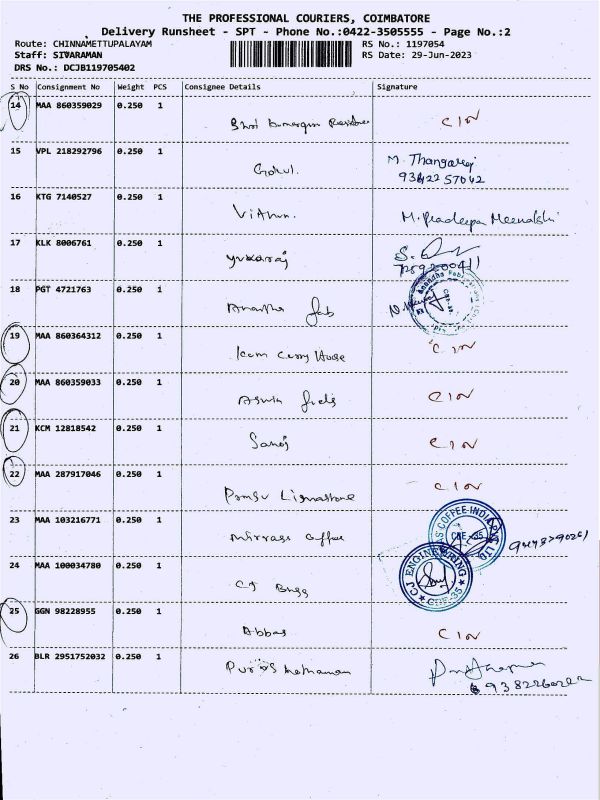 THE PROFESSIONAL COURIERS, COIMBATORE
Delivery Runsheet - SPT - Phone No.:0422-3505555 - Page No.:2
Route: CHINNAMETTUPALAYAM RS No.: 1197054
Staff: SIVARAMAN RS Date: 29-Jun-2023
DRS No.: DCJB119705402
S No Consignment No Weight PCS Consignee Details Signature
14 MAA 860359029 0.250 1
C I N
15 VPL 218292796 0.250 1
Gokul. M. Thangaraj
16 KTG 7140527 0.250 1
Vithun. M. Pradeepa Meenakshi
17 KLK 8006761 0.250 1
yuvaraj
18 PGT 4721763 0.250 1
Anantha fab
19 MAA 860364312 0.250 1
C I N
20 MAA 860359033 0.250 1
C I N
21 KCM 12818542 0.250 1
Sanoj C I N
22 MAA 287917046 0.250 1
C I N
23 MAA 103216771 0.250 1
COFFEE INDIA PVT LTD
CBE - 35
24 MAA 100034780 0.250 1
CJ Engg CJ ENGINEERING
CBE-35
25 GGN 98228955 0.250 1
Abbas C I N
26 BLR 2951752032 0.250 1